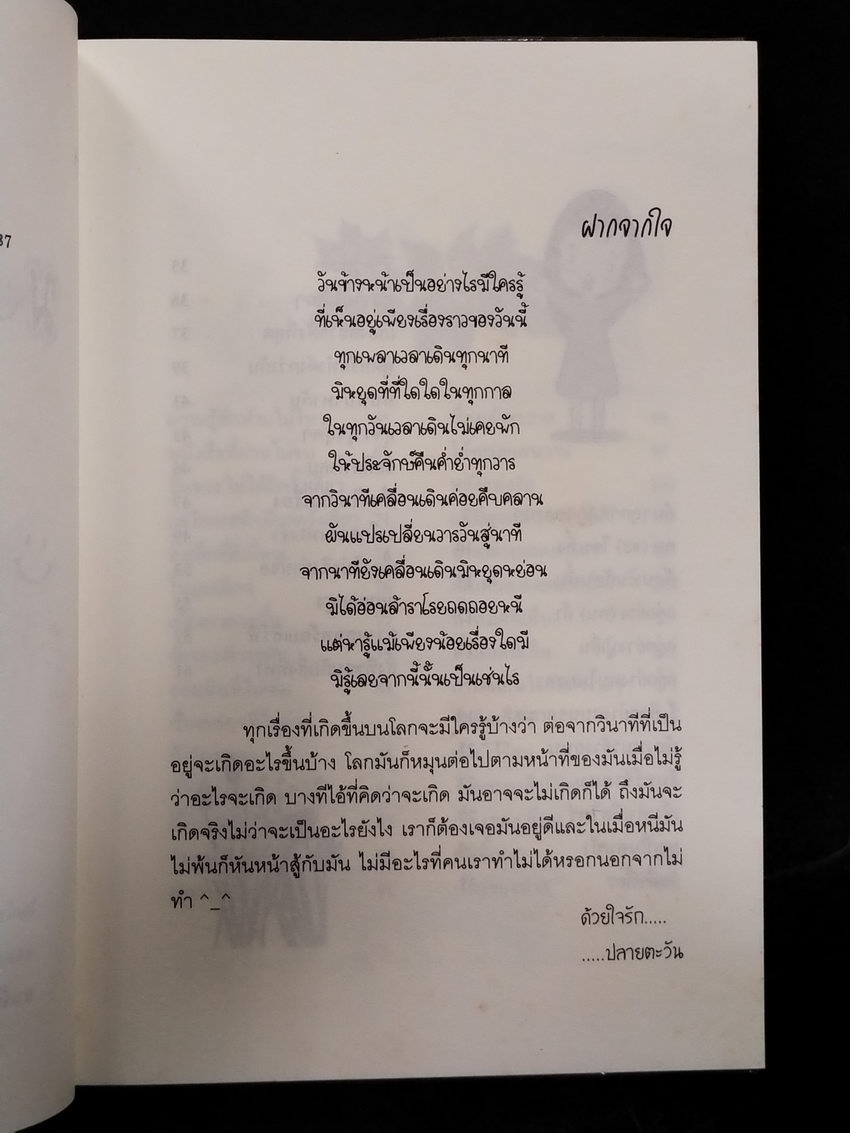 37
ฝากจากใจ
วันข้างหน้าเป็นอย่างไรมีใครรู้
ที่เห็นอยู่เพียงเรื่องราวของวันนี้
ทุกเพลาเวลาเดินทุกนาที
มิหยุดที่ที่ใดใดในทุกกาล
ในทุกวันเวลาเดินไม่เคยพัก
ให้ประจักษ์คืนค่ำย่ำทุกวาร
จากวินาทีเคลื่อนเดินค่อยคืบคลาน
ผันแปรเปลี่ยนวารวันสู่นาที
จากนาทียังเคลื่อนเดินมิหยุดหย่อน
มิได้อ่อนล้าราโรยถดถอยหนี
แต่หารู้แม้เพียงน้อยเรื่องใดมี
มิรู้เลยจากนี้นั้นเป็นเช่นไร
ทุกเรื่องที่เกิดขึ้นบนโลกจะมีใครรู้บ้างว่า ต่อจากวินาทีที่เป็น
อยู่จะเกิดอะไรขึ้นบ้าง โลกมันก็หมุนต่อไปตามหน้าที่ของมันเมื่อไม่รู้
ว่าอะไรจะเกิด บางทีไอ้ที่คิดว่าจะเกิด มันอาจจะไม่เกิดก็ได้ ถึงมันจะ
เกิดจริงไม่ว่าจะเป็นอะไรยังไง เราก็ต้องเจอมันอยู่ดีและในเมื่อหนีมัน
ไม่พ้นก็หันหน้าสู้กับมัน ไม่มีอะไรที่คนเราทำไม่ได้หรอกนอกจากไม่
ทำ ^_^
ด้วยใจรัก.....
.....ปลายตะวัน